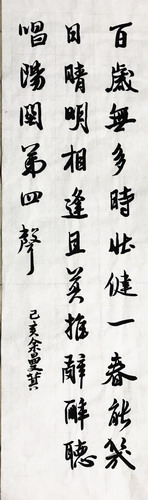 百歲無多時壯健一春能幾
日晴明相逢且莫推辭醉聽
唱陽関第四聲
己亥余曼其